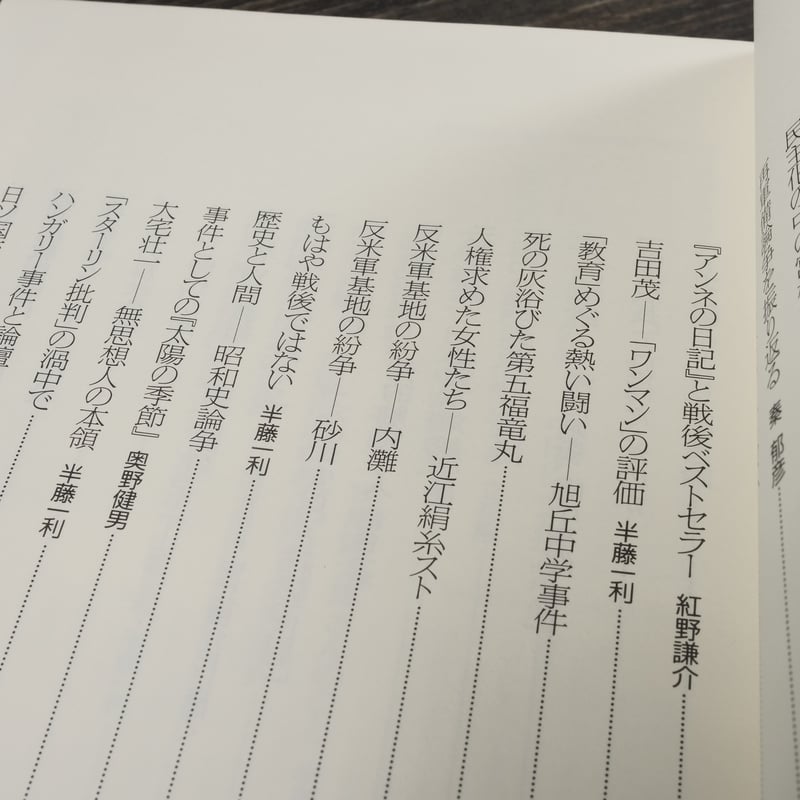 再軍備論争を振り返る 秦 郁彦
『アンネの日記』と戦後ベストセラー 紅野謙介
吉田茂――「ワンマン」の評価 半藤一利
「教育」めぐる熱い闘い――旭丘中学事件
死の灰浴びた第五福竜丸
人権求めた女性たち――近江絹糸スト
反米軍基地の紛争――内灘
反米軍基地の紛争――砂川
もはや戦後ではない 半藤一利
歴史と人間――昭和史論争
事件としての『太陽の季節』 奥野健男
大宅壮一――無思想人の本領
「スターリン批判」の渦中で 半藤一利
ハンガリー事件と論壇
日ソ国